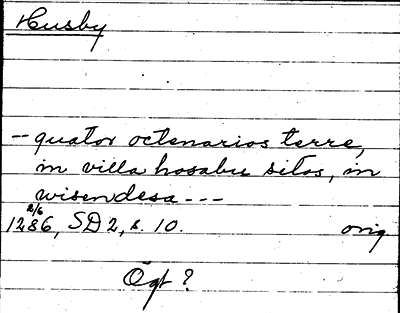 Husby
-- quator octenarios terre,
in villa hosabu sitos, in
wisendesa ---
2/6
1286, SD 2, s. 10. orig
Ögt ?